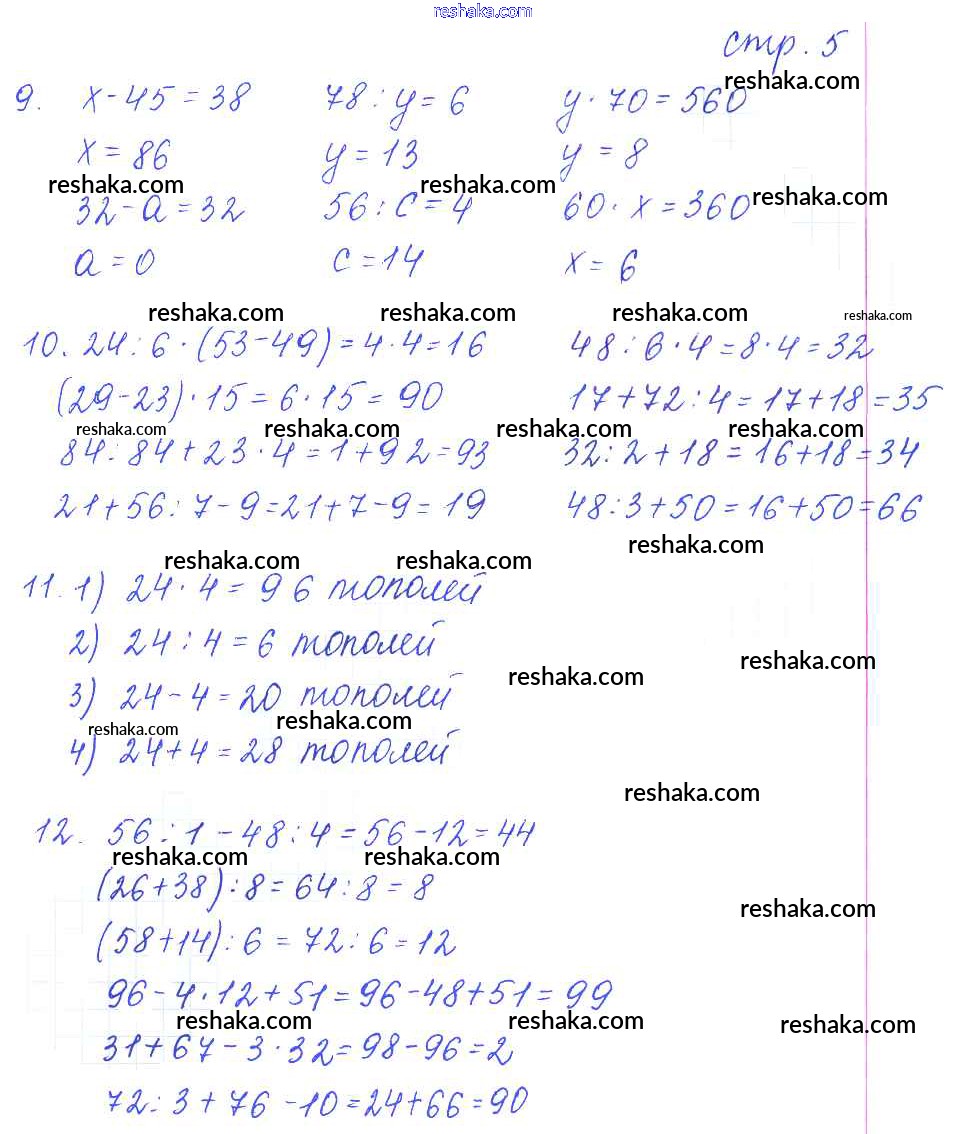 reshaka.com
стр. 5
reshaka.com
9. x - 45 = 38 78 : y = 6 y · 70 = 560
x = 86 y = 13 y = 8
reshaka.com reshaka.com reshaka.com
32 - a = 32 56 : c = 4 60 · x = 360
a = 0 c = 14 x = 6
reshaka.com reshaka.com reshaka.com reshaka.com
10. 24 : 6 · (53 - 49) = 4 · 4 = 16 48 : 6 · 4 = 8 · 4 = 32
(29 - 23) · 15 = 6 · 15 = 90 17 + 72 : 4 = 17 + 18 = 35
reshaka.com reshaka.com reshaka.com reshaka.com
84 : 84 + 23 · 4 = 1 + 92 = 93 32 : 2 + 18 = 16 + 18 = 34
21 + 56 : 7 - 9 = 21 + 7 - 9 = 19 48 : 3 + 50 = 16 + 50 = 66
reshaka.com reshaka.com reshaka.com
11. 1) 24 · 4 = 96 тополей
2) 24 : 4 = 6 тополей
reshaka.com reshaka.com
3) 24 - 4 = 20 тополей
reshaka.com reshaka.com
4) 24 + 4 = 28 тополей
reshaka.com
12. 56 : 1 - 48 : 4 = 56 - 12 = 44
reshaka.com reshaka.com
(26 + 38) : 8 = 64 : 8 = 8
reshaka.com
(58 + 14) : 6 = 72 : 6 = 12
96 - 4 · 12 + 51 = 96 - 48 + 51 = 99
reshaka.com reshaka.com reshaka.com
31 + 67 - 3 · 32 = 98 - 96 = 2
72 : 3 + 76 - 10 = 24 + 66 = 90